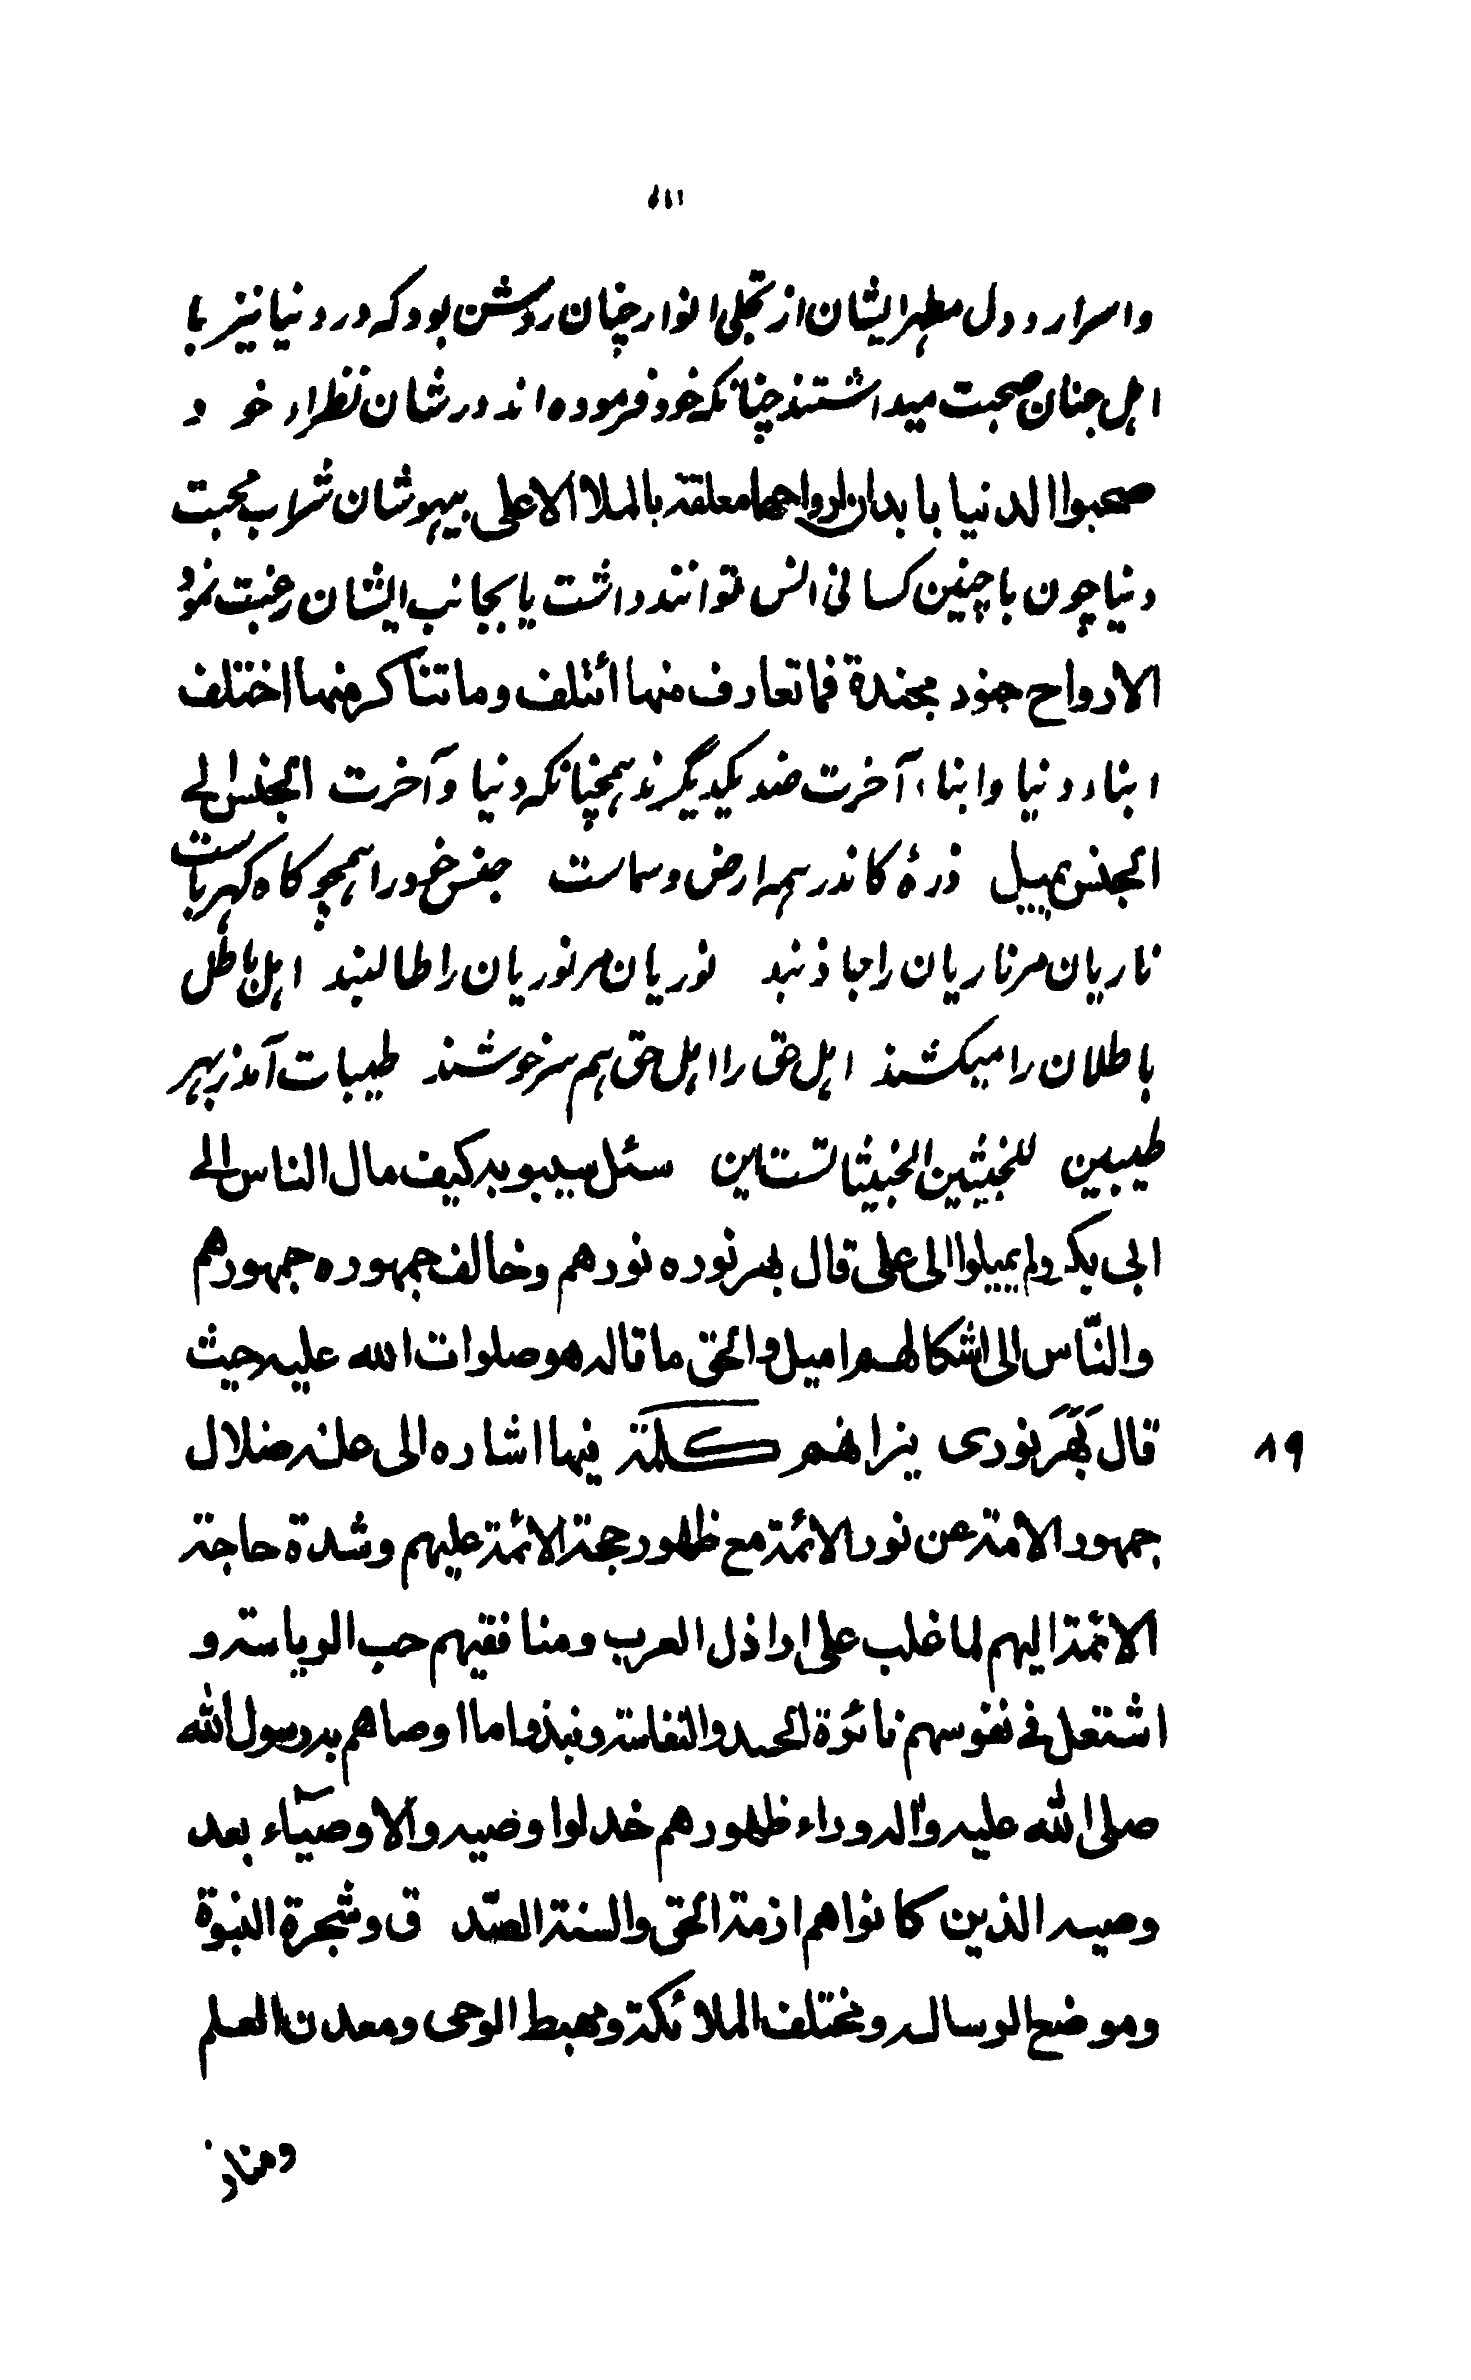 ۱۱۵
و اسرار و دل مطهر ایشان از تجلی انوار چنان روشن بود که در دنیا نیز با
اهل جنان صحبت میداشتند چنانکه خود فرموده اند در شان نظراء خو د
صحبوا الدنیا با بدان ارواحها معلقة بالملاء الاعلی بیهوشان شراب محبت
دنیا چون با چنین کسانی انس توانند داشت یا بجانب ایشان رغبت نمود
الارواح جنود مجندة فما تعارف منها ائتلف وما تناکر منها اختلف
ابناء دنیا وابناء آخرت ضد یکدیگرند همچنانکه دنیا و آخرت الجنس الی
الجنس یمیل ذرهٔ کاندر همه ارض و سماست جنس خود را همچو کاه کهرباست
ناریان مر ناریان را جاذبند نوریان مر نوریان را طالبند اهل باطل
باطلان را میکشند اهل حق را اهل حق هم سرخوشند طیبات آمد زبهر
طیبین للخبیثین الخبیثاتست این سئل سیبویه کیف مال الناس الی
ابی بکر ولم یمیلوا الی علی قال بهر نوره نورهم وخالف جمهوره جمهورهم
والنّاس الی اشکالهم امیل والحق ما قاله هو صلوات الله علیه حیث
قال بَهَرَ نوری کلمة فیها اشاره الی علة ضلال
۱۹
جمهور الامة عن نور الائمة مع ظهور حجة الائمة علیهم وشدة حاجة
الائمة الیهم لما غلب علی اراذل العرب ومنافقیهم حب الریاسة و
اشتعل فی نفوسهم نائرة الحسد والنفاسة ونبذوا ما اوصاهم به رسول الله
صلی الله علیه وآله وراء ظهورهم خذلوا وصیه والاوصیآء بعد
وصیه الذین کانوا هم ازمة الحق والسنة الصّد ق وشجرة النبوة
وموضع الرسالة ومختلف الملائکة ومهبط الوحی ومعدن العلم
ومنار